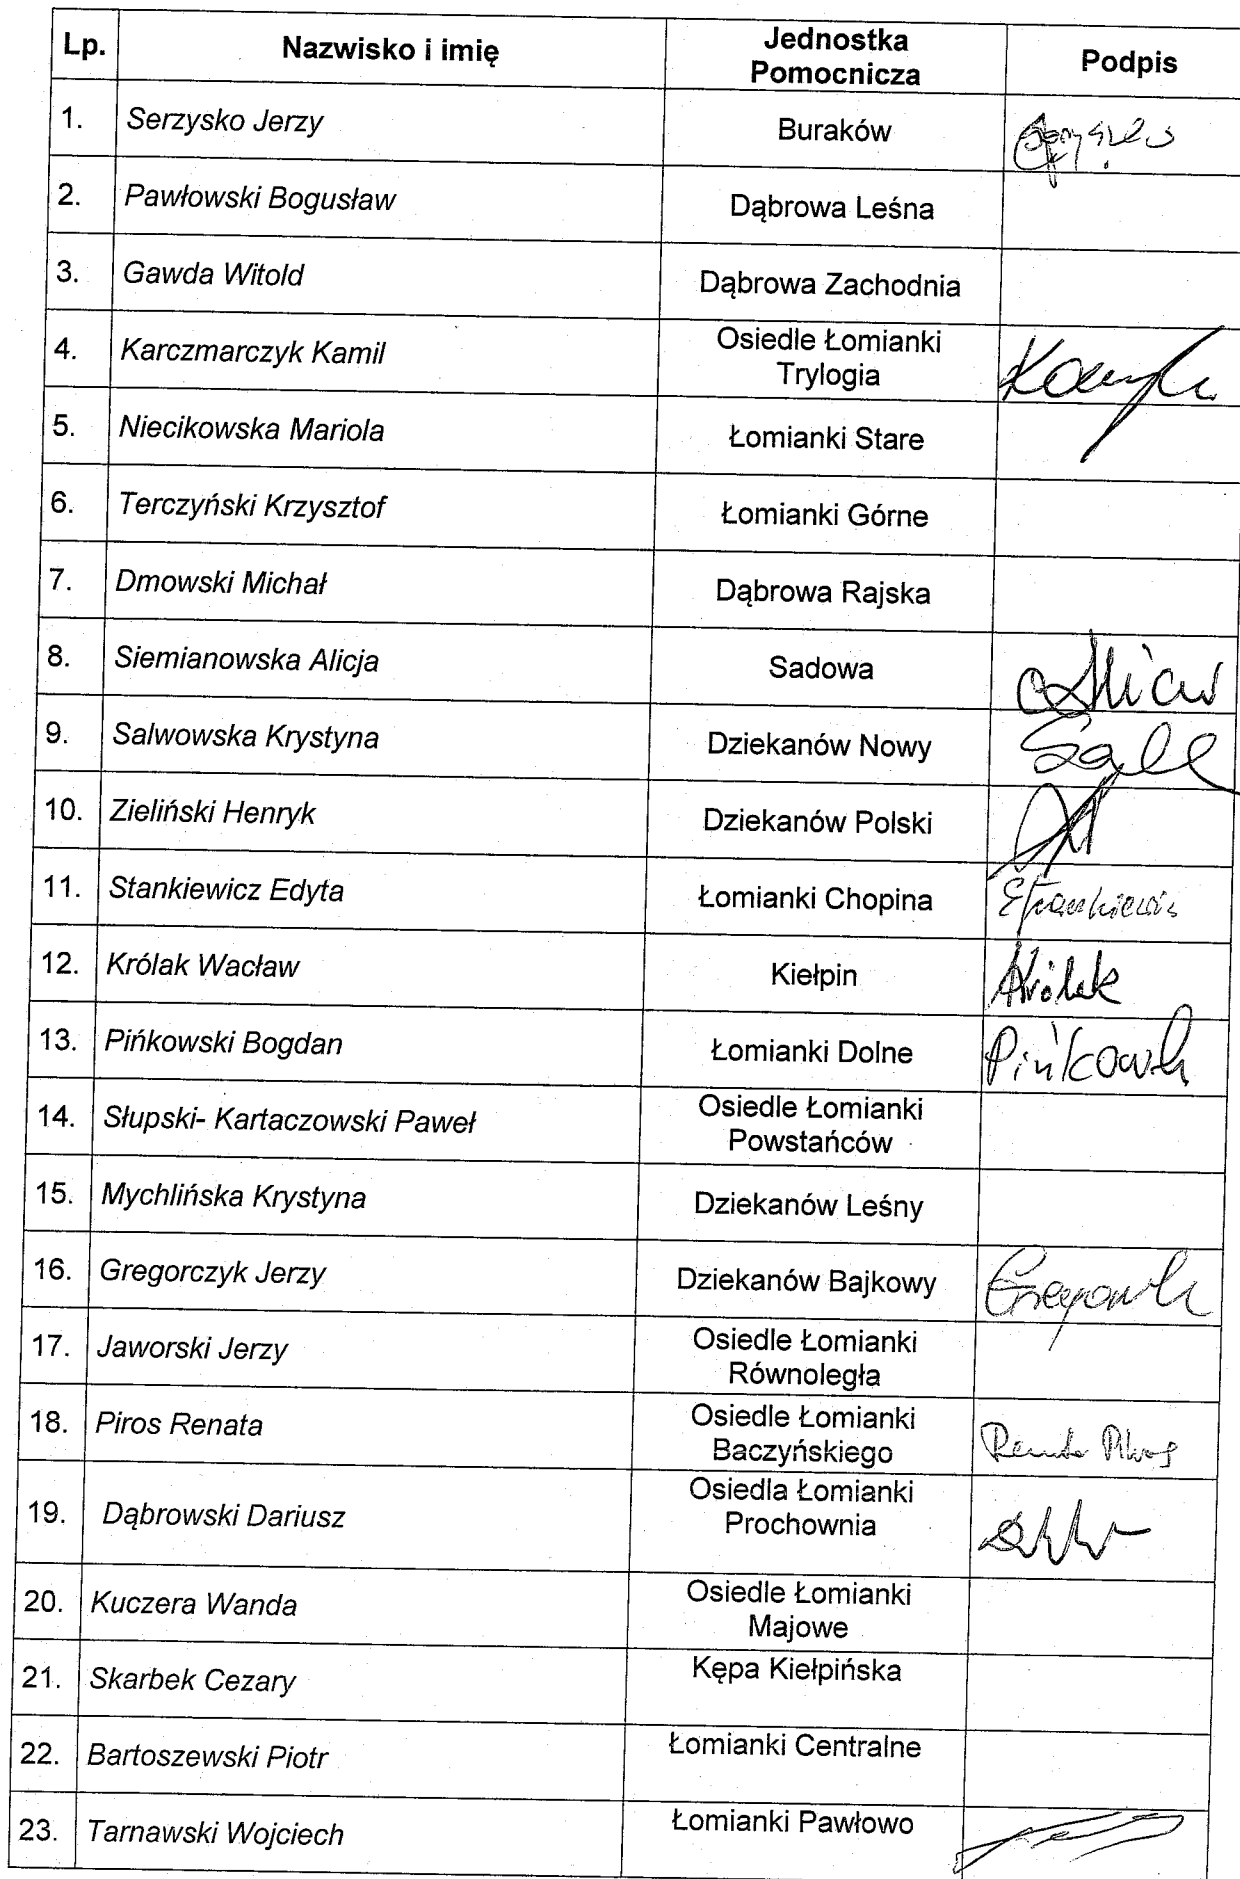 Lp. Nazwisko i imię Jednostka Pomocnicza Podpis
1. Serzysko Jerzy Buraków
2. Pawłowski Bogusław Dąbrowa Leśna
3. Gawda Witold Dąbrowa Zachodnia
4. Karczmarczyk Kamil Osiedle Łomianki Trylogia
5. Niecikowska Mariola Łomianki Stare
6. Terczyński Krzysztof Łomianki Górne
7. Dmowski Michał Dąbrowa Rajska
8. Siemianowska Alicja Sadowa
9. Salwowska Krystyna Dziekanów Nowy
10. Zieliński Henryk Dziekanów Polski
11. Stankiewicz Edyta Łomianki Chopina
12. Królak Wacław Kiełpin Królak
13. Pińkowski Bogdan Łomianki Dolne
14. Słupski- Kartaczowski Paweł Osiedle Łomianki Powstańców
15. Mychlińska Krystyna Dziekanów Leśny
16. Gregorczyk Jerzy Dziekanów Bajkowy
17. Jaworski Jerzy Osiedle Łomianki Równoległa
18. Piros Renata Osiedle Łomianki Baczyńskiego Renata Piros
19. Dąbrowski Dariusz Osiedla Łomianki Prochownia
20. Kuczera Wanda Osiedle Łomianki Majowe
21. Skarbek Cezary Kępa Kiełpińska
22. Bartoszewski Piotr Łomianki Centralne
23. Tarnawski Wojciech Łomianki Pawłowo